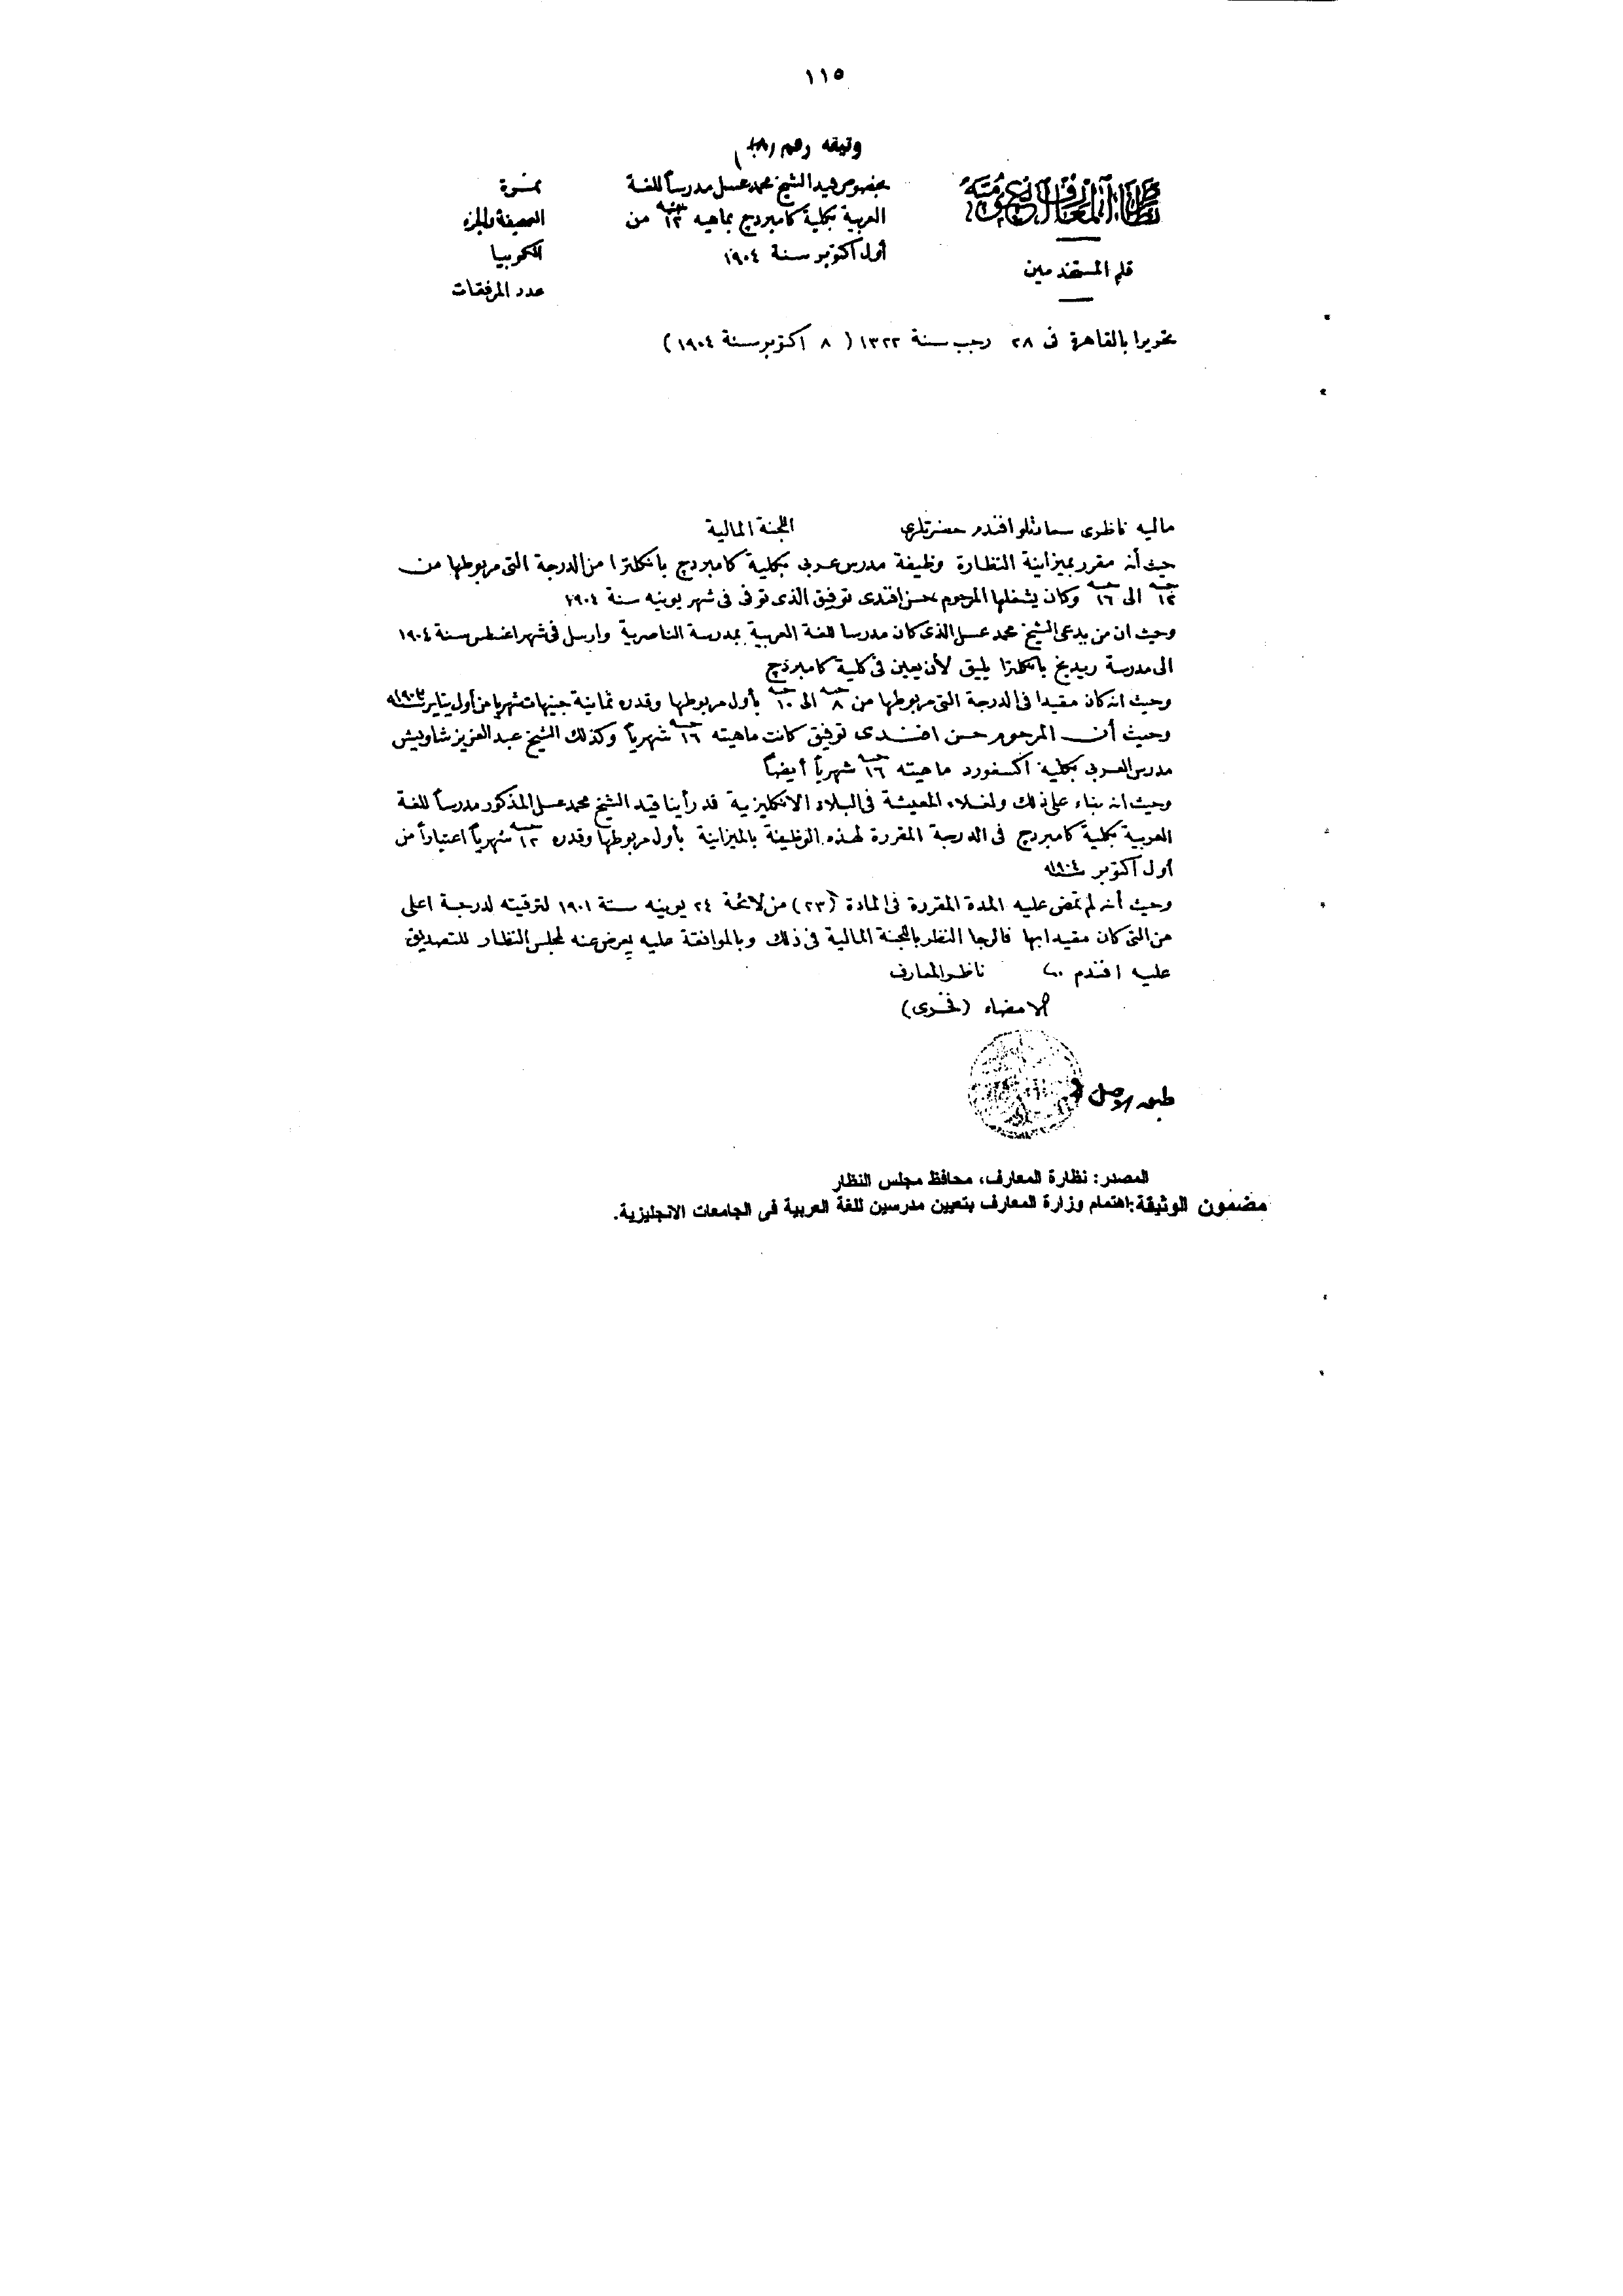 ١١٥
وثيقه رقم
نظارة المعارف العمومية
قلم المستخدمين
بخصوص قيد الشيخ محمد عسل مدرساً للغة
العربية بكلية كامبردچ بماهيه ١٢ جنيه من
أول اكتوبر سنة ١٩٠٤
نمرة
الصحيفة والجزء
الكوبيا
عدد المرفقات
تحريرا بالقاهرة فى ٢٨ رجب سنة ١٣٢٢ ( ٨ اكتوبر سنة ١٩٠٤ )
ماليه ناظرى سعادتلو افندم حضرتلرى اللجنة المالية
حيث أنه مقرر بميزانية النظارة وظيفة مدرس عربى بكلية كامبردچ بانكلترا من الدرجة التى مربوطها من
١٢ جنيه الى ١٦ جنيه وكان يشغلها المرحوم حسن افندى توفيق الذى توفى فى شهر يونيه سنة ١٩٠٤
وحيث ان من يدعى الشيخ محمد عسل الذى كان مدرسا للغة العربية بمدرسة الناصرية وارسل فى شهر اغسطس سنة ١٩٠٤
الى مدرسة ريدينج بانكلترا يليق لأن يعين فى كلية كامبردچ
وحيث انه كان مقيدا فى الدرجة التى مربوطها من ٨ جنيه الى ١٠ جنيه بأول مربوطها وقدره ثمانية جنيهات شهريا من أول يناير سنة
وحيث أن المرحوم حسن افندى توفيق كانت ماهيته ١٦ جنيه شهرياً وكذلك الشيخ عبد العزيز شاويش
مدرس العربى بكلية اكسفورد ماهيته ١٦ جنيه شهرياً أيضاً
وحيث انه بناء على ذلك ولغلاء المعيشة فى البلاد الانكليزية قد رأينا قيد الشيخ محمد عسل المذكور مدرساً للغة
العربية بكلية كامبردچ فى الدرجة المقررة لهذه الوظيفة بالميزانية بأول مربوطها وقدره ١٢ جنيه شهرياً اعتباراً من
أول اكتوبر سنة ١٩٠٤
وحيث أنه لم تمض عليه المدة المقررة فى المادة (٢٣) من لائحة ٢٤ يونيه سنة ١٩٠١ لترقيته لدرجة اعلى
من التى كان مقيدا بها فالرجا النظر باللجنة المالية فى ذلك وبالموافقة عليه يعرض عنه لمجلس النظار للتصديق
عليه افندم ناظر المعارف
الامضاء (فخرى)
طبق الاصل
المصدر: نظارة المعارف، محافظ مجلس النظار
مضمون الوثيقة: اهتمام وزارة المعارف بتعيين مدرسين للغة العربية فى الجامعات الانجليزية.